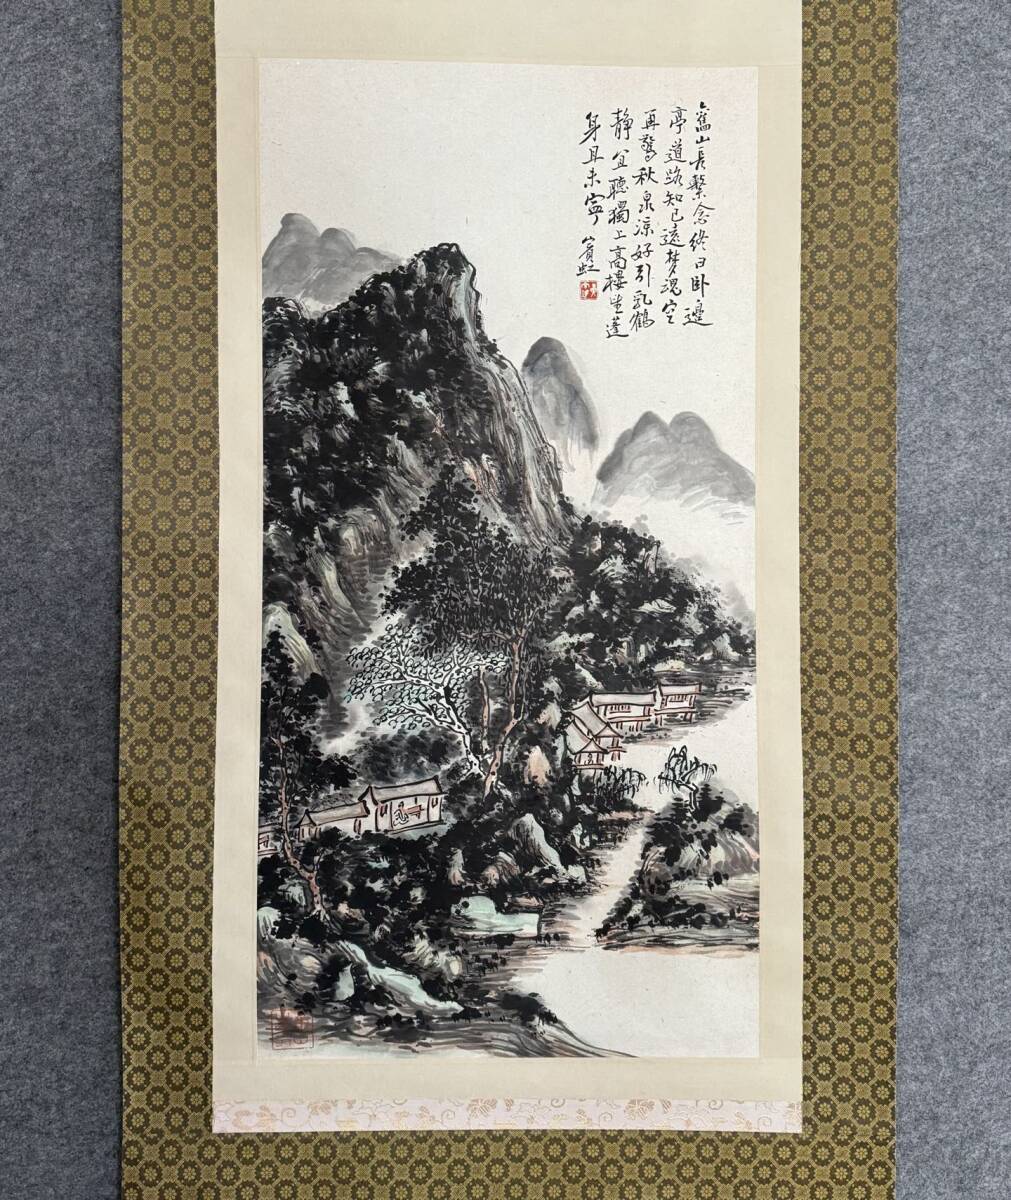 舊山長繫念終日卧邊
亭道路知已遠梦魂空
再驚秋泉涼好引乳鶴
靜宜聽獨上高樓望蓬
身且未寧
賓虹